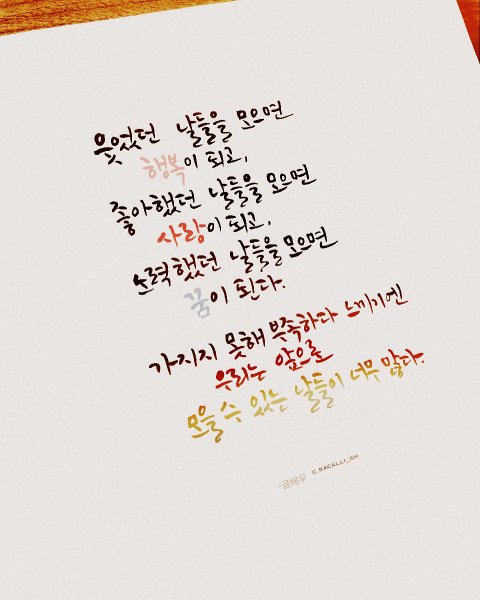 웃었던 날들을 모으면
행복이 되고,
좋아했던 날들을 모으면
사랑이 되고,
노력했던 날들을 모으면
꿈이 된다.
가지지 못해 부족하다 느끼기엔
우리는 앞으로
모을 수 있는 날들이 너무 많다.
-글배우 C.RACALLI_GH